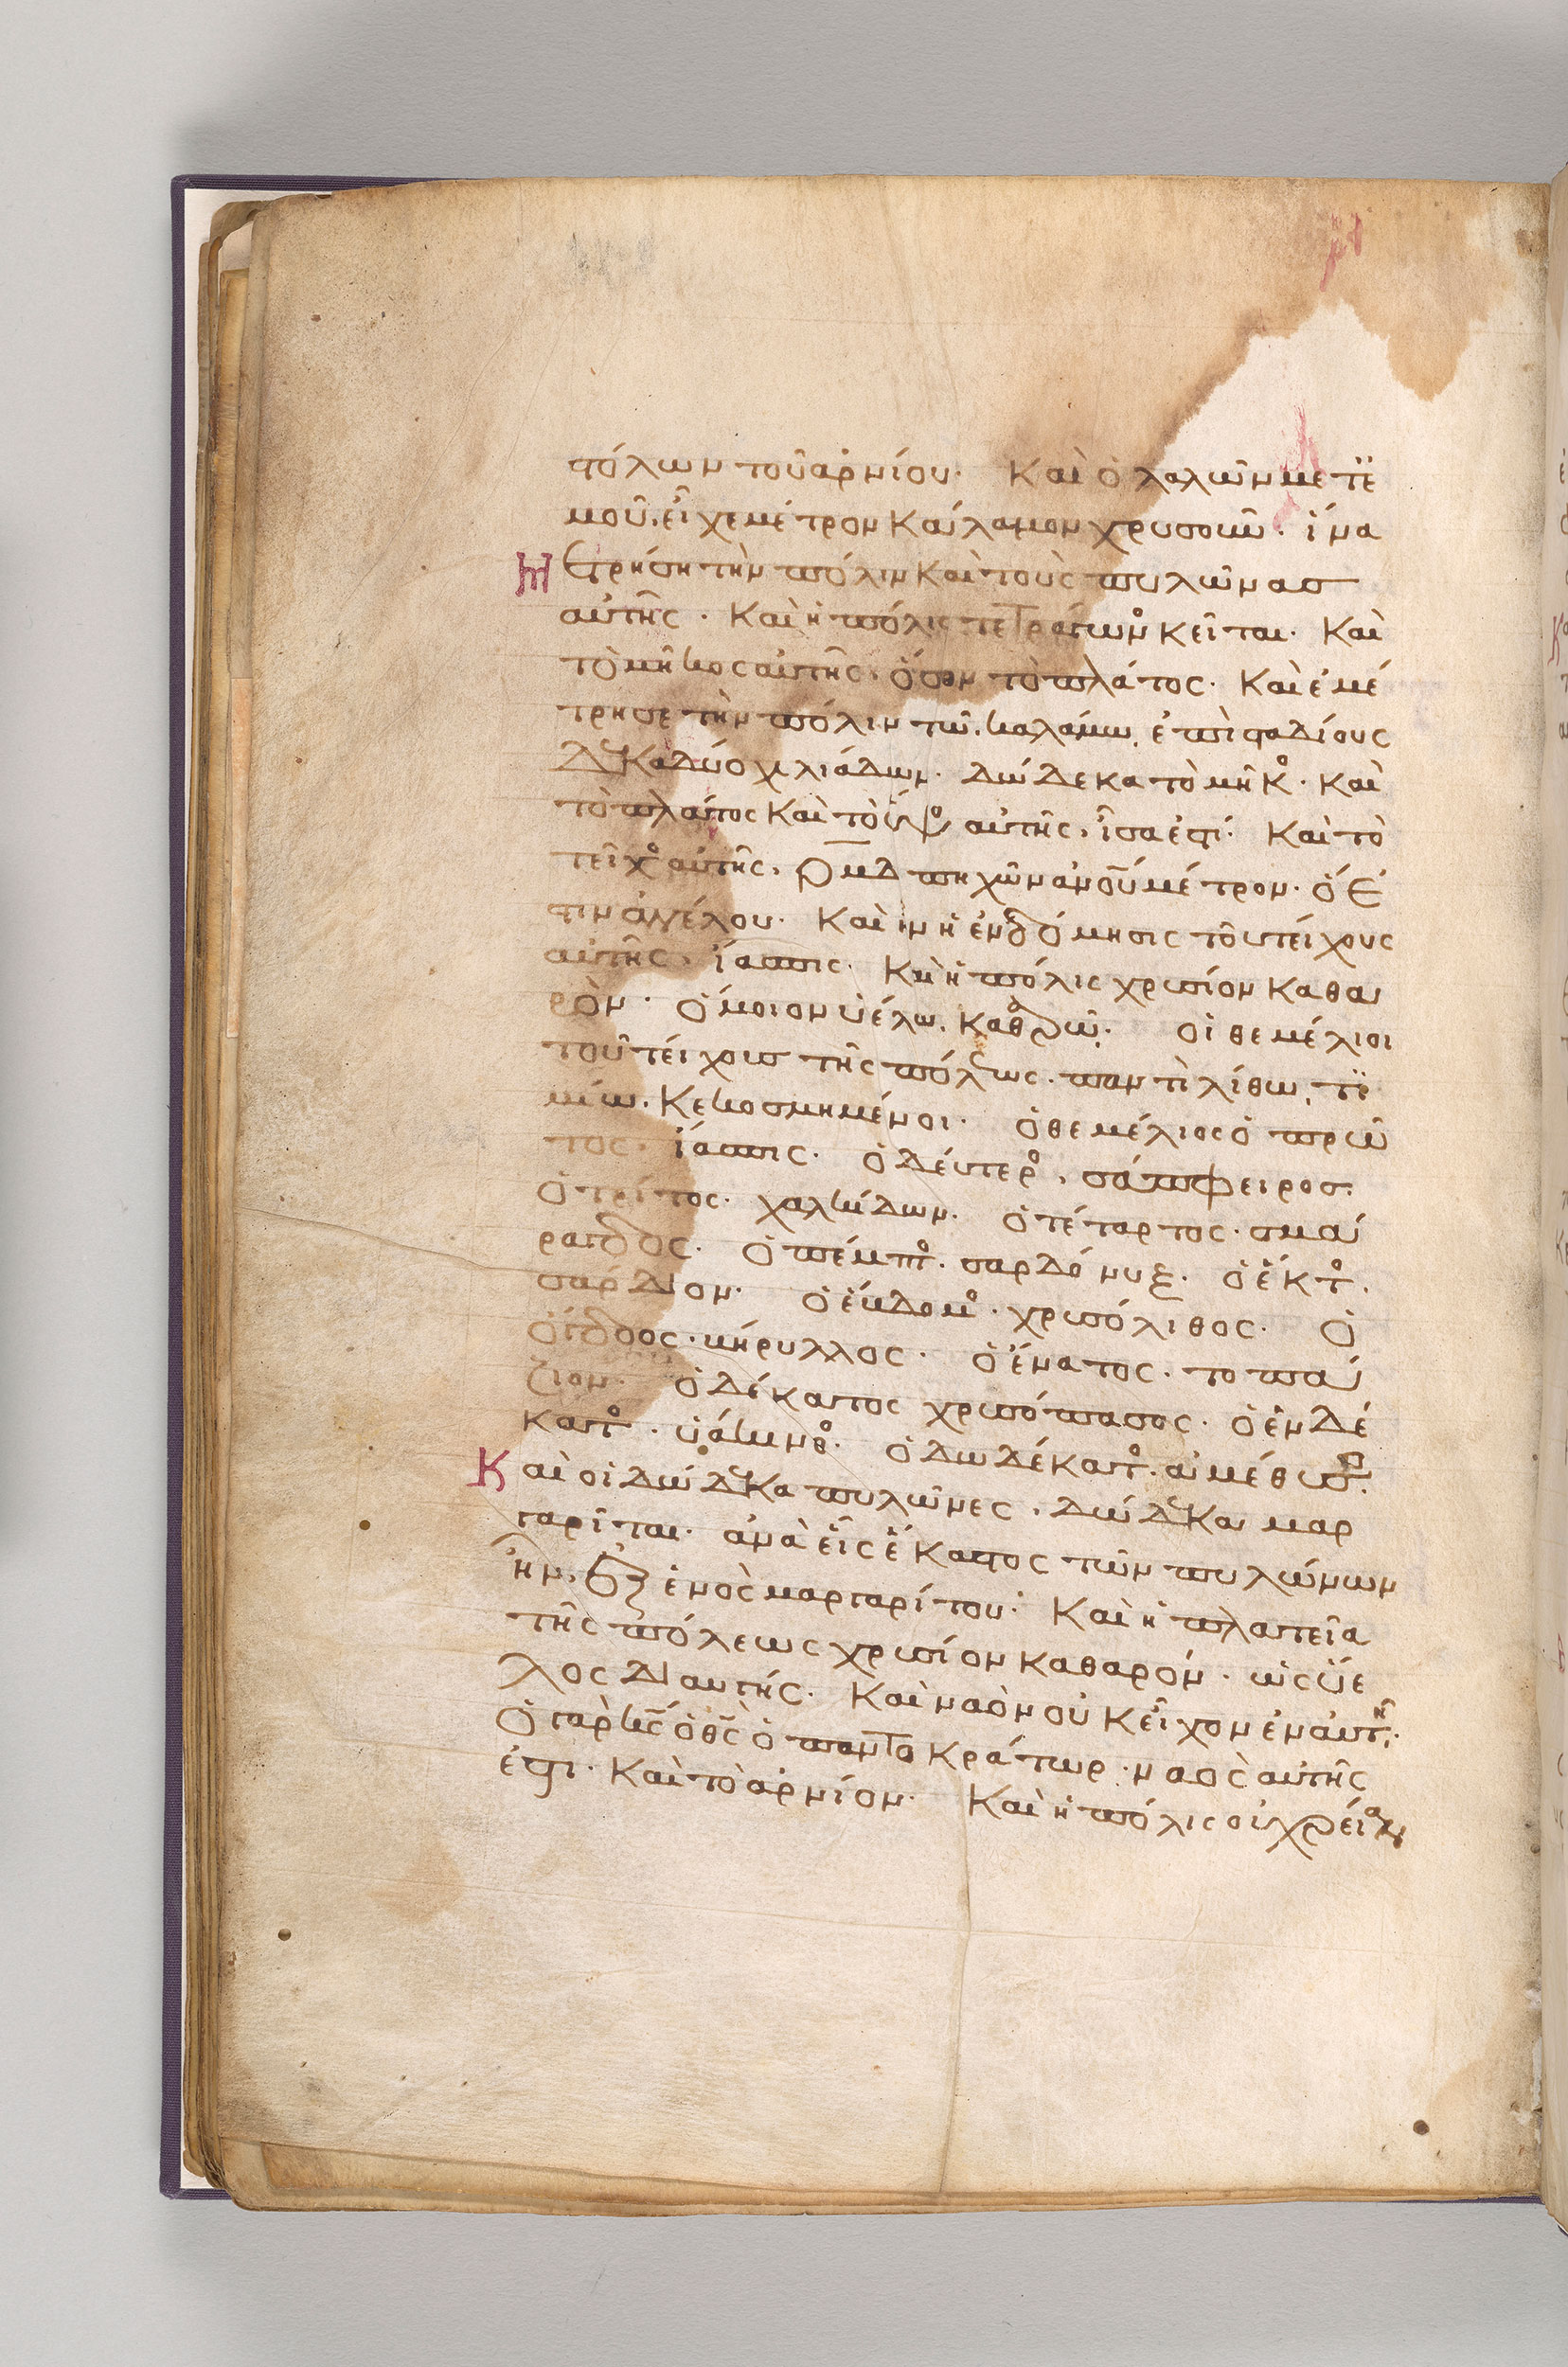 στόλων τοῦ ἀρνίου· Καὶ ὁ λαλῶν μετ ἐ
μοῦ, εἶχε μέτρον κάλαμον χρυσοῦν· ἵνα
μετρήση τὴν πόλιν καὶ τοὺς πυλῶνασ
αὐτῆς· Καὶ ἡ πόλις τετράγωνος κεῖται· Καὶ
τὸ μῆκος αὐτῆς, ὅσον τὸ πλάτος· Καὶ ἐμέ
τρησε τὴν πόλιν τῶ καλάμω, ἐπὶ σταδίους
δεκαδύο χιλιάδων· δώδεκα τὸ μῆκος· Καὶ
τὸ πλάτος καὶ τὸ ὕψος αὐτῆς, ἴσα ἐστί· Καὶ τὸ
τεῖχος αὐτῆς, ρμδ πηχῶν ἀνου μέτρον· ὅ ἐ
στιν ἀγγέλου· Καὶ ἦν ἡ ἐνδόμησις τοῦ τείχους
αὐτῆς, ἴασπις· Καὶ ἡ πόλις χρυσίον καθα
ρὸν· ὅμοιον ὑέλω καθαρῶ· οἱ θεμέλιοι
τοῦ τείχους τῆς πόλεως· παντὶ λίθω τι
μίω. κεκοσμημένοι· ὁ θεμέλιος ὁ πρῶ
τος, ἴασπις· ὁ δεύτερος, σάπφειροσ·
ὁ τρίτος· χαλκίδων· ὁ τέταρτος· σμά
ραγδος· ὁ πέμπτος· σαρδόνυξ· ὁ ἕκτος·
σάρδιον· ὁ ἕβδομος· χρυσόλιθος· ὁ
ὄγδοος· βήρυλλος· ὁ ἔνατος· τοπά
ζιον· ὁ δέκατος χρυσόπασος· ὁ ἑνδέ
κατος· ὑάκινθος· ὁ δωδέκατος· ἀμέθυστος·
Καὶ οἱ δώδεκα πυλῶνες, δώδεκα μαρ
γαρῖται· ἀνὰ εἷς ἕκαστος τῶν πυλώνων
ἦν, ἐξ ἑνὸς μαργαρίτου· Καὶ ἡ πλατεῖα
τῆς πόλεως χρυσίον καθαρόν· ὡς ὕε
λος διαυγής· Καὶ ναὸν οὐκ εἶχον ἐν αὐτῆ·
ὁ γὰρ κς ὁ θς ὁ παντοκράτωρ· ναὸς αὐτῆς
ἐστι· Καὶ τὸ ἀρνίον· Καὶ ἡ πόλις οὐ χρείαν